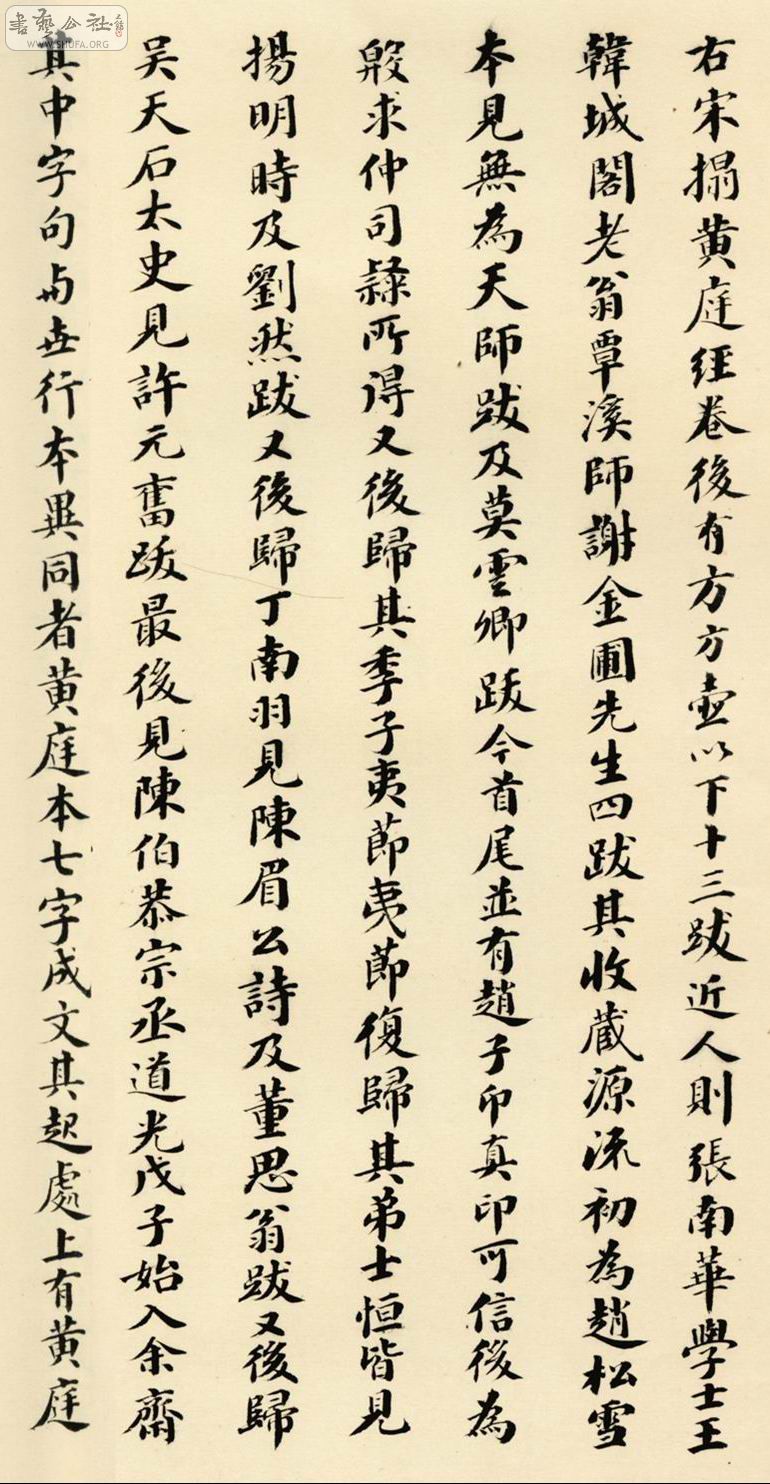 書藝公社
WWW.SHUFA.ORG
右宋搨黃庭經卷後有方方壺以下十三跋近人則張南華學士王
韓城閣老翁覃溪師謝金圃先生四跋其收藏源流初為趙松雪
本見無為天師跋及莫雲卿跋今首尾並有趙子印真印可信後為
殷求仲司隸所得又後歸其季子夷節夷節復歸其弟士恒皆見
揚明時及劉然跋又後歸丁南羽見陳眉公詩及董思翁跋又後歸
吴天石太史見許元奮跋最後見陳伯恭宗丞道光戊子始入余齋
其中字句与世行本異同者黃庭本七字成文其起處上有黃庭